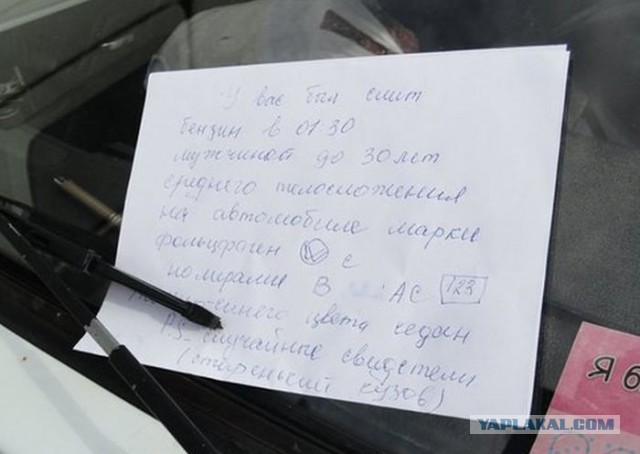 У вас был слит
бензин в 01:30
мужчиной до 30 лет
среднего телосложения
на автомобиле марки
фольцваген с
номерами В АС 123
цвета седан
PS случайные свидетели
(старенький кузов)
Я 6
YAPLAKAL.COM